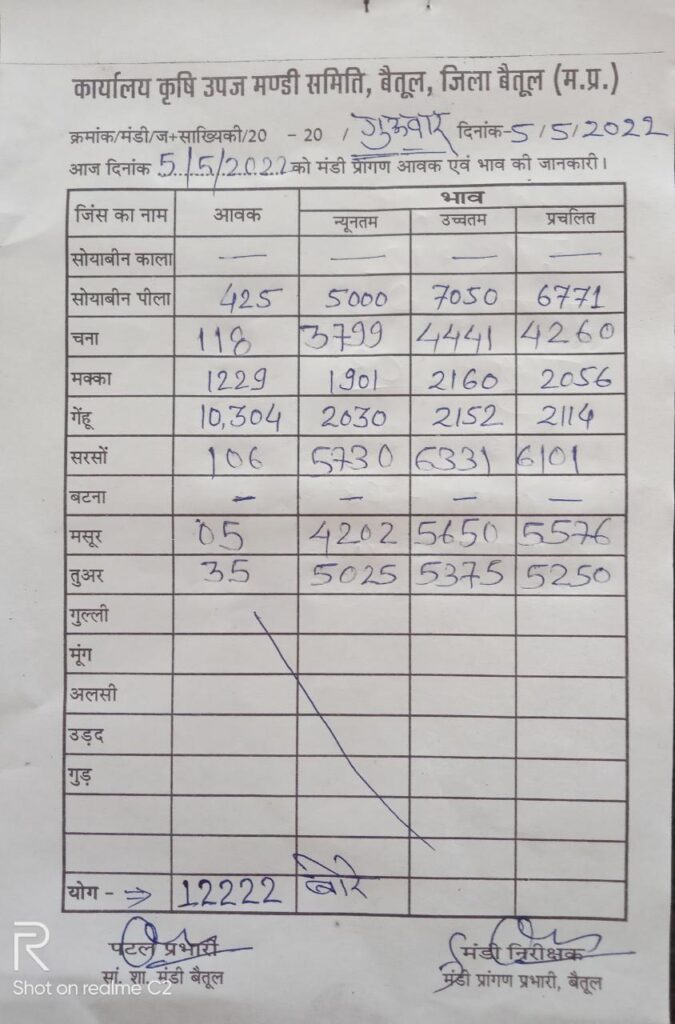 कार्यालय कृषि उपज मण्डी समिति, बैतूल, जिला बैतूल (म.प्र.)
क्रमांक/मंडी/ज+साख्यिकी/20 - 20 / गुरूवार दिनांक-5/5/2022
आज दिनांक 5/5/2022 को मंडी प्रांगण आवक एवं भाव की जानकारी।
जिंस का नाम आवक भाव
न्यूनतम उच्चतम प्रचलित
सोयाबीन काला — — — —
सोयाबीन पीला 425 5000 7050 6771
चना 118 3799 4441 4260
मक्का 1229 1901 2160 2056
गेंहू 10,304 2030 2152 2114
सरसों 106 5730 6331 6101
बटना - - - -
मसूर 05 4202 5650 5576
तुअर 35 5025 5375 5250
गुल्ली
मूंग
अलसी
उड़द
गुड़
योग - → 12222 बोरे
पटल प्रभारी मंडी निरीक्षक
सां. शा. मंडी बैतूल मंडी प्रांगण प्रभारी, बैतूल
R
Shot on realme C2